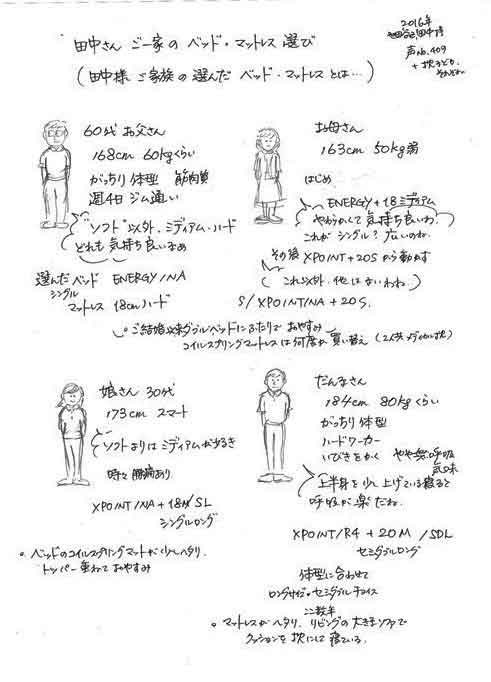 田中さん ご一家の ベッド・マットレス 選び
2016年
(田中様 ご家族の選んだ ベッド・マットレスとは…)
声No.409
+枕子ども
60代 お父さん
168cm 60kgくらい
がっちり体型 筋肉質
週4日 ジム通い
ソフト以外、ミディアム・ハード
どれも気持ち良いなぁ
選んだベッド ENERGY/NA
シングル
マットレス 18cmハード
お母さん
163cm 50kg弱
はじめ
ENERGY+18ミディアム
やわらかくて気持ち良いわ。
これがシングル?広いのね。
その後 XPOINT+20Sから動かず
(これ以外、他はないわね。)
S/XPOINT/NA+20S.
。ご結婚以来ダブルベッドにふたりで おやすみ
コイルスプリングマットレスは何度か買い替え
娘さん 30代
173cm スマート
ソフトよりはミディアムが好き
時々 腰痛あり
XPOINT/NA+18M/SL
シングルロング
。ベッドのコイルスプリングマットが少しヘタリ、
トッパー重ねておやすみ
だんなさん
184cm 80kgくらい
がっちり体型
ハードワーカー
いびきをかく やや無呼吸
気味
上半身を少し上げている寝ると
呼吸が楽だね。
XPOINT/R4+20M/SDL
セミダブルロング
体型に合わせて
ロングサイズ・セミダブルチョイス
ここ数年
。マットレスがヘタリ、リビングの大きなソファで
クッションを枕にして寝ている。